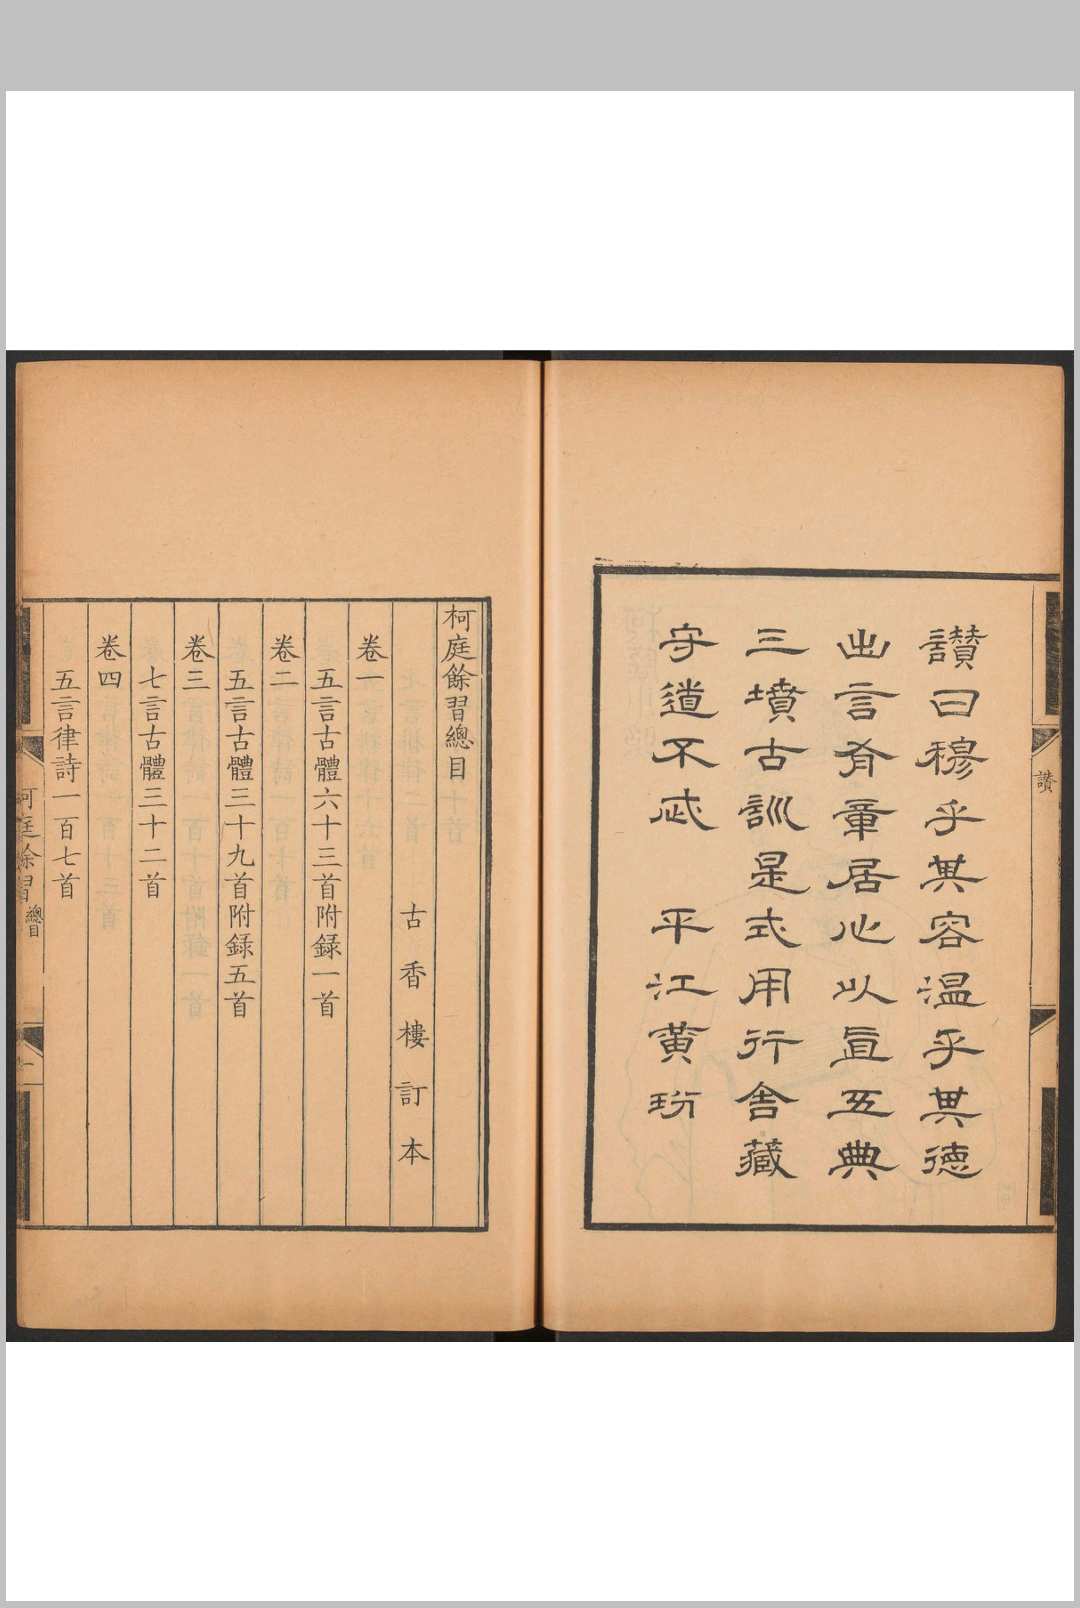 讚曰穆乎其容温乎其德
出言有章居心以直五典
三墳古訓是式用行舍藏
守道不忒 平江黃玢
讚
柯庭餘習總目
古香樓訂本
卷一
五言古體六十三首附錄一首
卷二
五言古體三十九首附錄五首
卷三
七言古體三十二首
卷四
五言律詩一百七首
柯庭餘習
總目
一